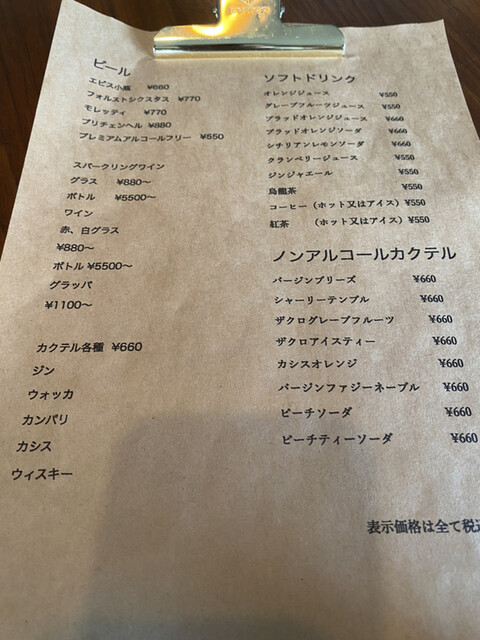 ビール
エビス小瓶 ¥660
フォルストシクスタス ¥770
モレッティ ¥770
プリチェンヘル ¥880
プレミアムアルコールフリー ¥550
スパークリングワイン
グラス ¥880～
ボトル ¥5500～
ワイン
赤、白グラス
¥880～
ボトル ¥5500～
グラッパ
¥1100～
カクテル各種 ¥660
ジン
ウォッカ
カンパリ
カシス
ウィスキー
ソフトドリンク
オレンジジュース ¥550
グレープフルーツジュース ¥550
ブラッドオレンジジュース ¥660
ブラッドオレンジソーダ ¥660
シチリアンレモンソーダ ¥660
クランベリージュース ¥550
ジンジャエール ¥550
烏龍茶 ¥550
コーヒー（ホット又はアイス）¥550
紅茶 （ホット又はアイス）¥550
ノンアルコールカクテル
バージンブリーズ ¥660
シャーリーテンプル ¥660
ザクログレープフルーツ ¥660
ザクロアイスティー ¥660
カシスオレンジ ¥660
バージンファジーネーブル ¥660
ピーチソーダ ¥660
ピーチティーソーダ ¥660
表示価格は全て税